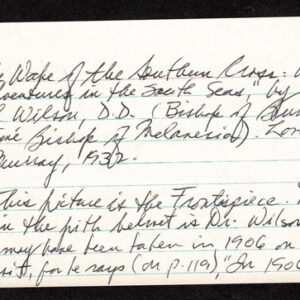 Wake of the Southern Cross: W
ventures in the South Seas," by
Wilson, D.D. (Bishop of Bun
Bishop of Melanesia). Lon
Murray, 1932.
This picture is the Frontispiece.
in the pith helmet is Dr. Wilson
may have been taken in 1906 on
for he says (on p. 119), "In 1906